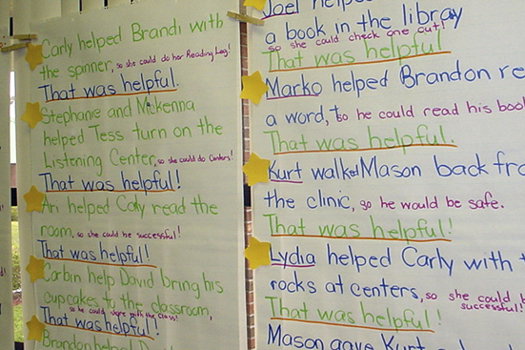 Carly helped Brandi with
the spinner, so she could do her Reading Log!
That was helpful.
Stephanie and Mckenna
helped Tess turn on the
Listening Center, so she could do Centers!
That was helpful!
Ari helped Carly read the
room, so she could be successful!
That was helpful!
Corbin help David bring his
cupcakes to the classroom,
so he could share with the class!
That was helpful!
Brandon helped
Joel helped
a book in the library
so she could check one out!
That was helpful
Marko helped Brandon re
a word, so he could read his boo
That was helpful.
Kurt walked Mason back fro
the clinic, so he would be safe.
That was helpful!
Lydia helped Carly with t
rocks at centers, so she could b
successful!
That was helpful!
Mason gave Kurt